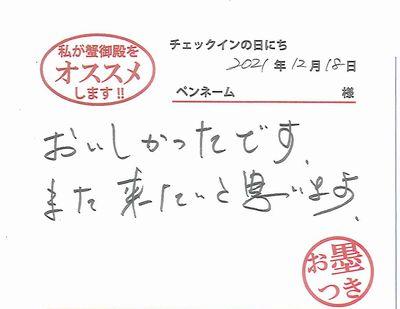 私が蟹御殿を
オススメ
します!!
チェックインの日にち
2021年12月18日
ペンネーム 様
おいしかったです。
また来たいと思います。
お墨
つき